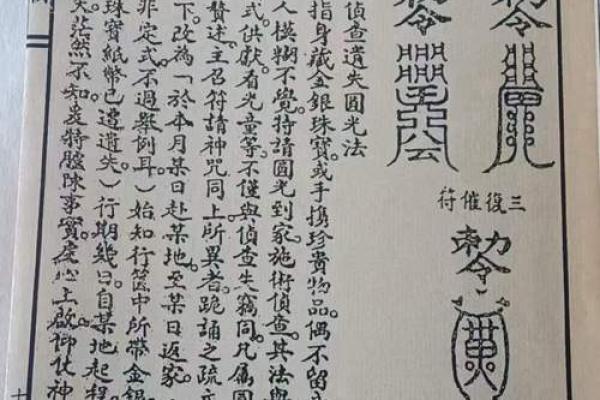 敕令
敕令
三復催符
敕令
偵查遺失圓光法
指身藏金銀珠寶或手携珍貴物品。偶不留
人模糊不覺。特請圓光到家施術偵查。其法與
式供獻看光童等。不僅與偵查失竊同。凡屬圓
贅述。主召符請神咒同上。所異者。跪誦之疏文
下。改為「於本月某日赴某地。至某日返家
非定式不過舉例耳）始知行篋中所帶金銀
珠寶紙幣已遭遺失）行期幾日。自某地起程
失茫然不知。爰特臚陳事實。虔心上啟。仰仗神